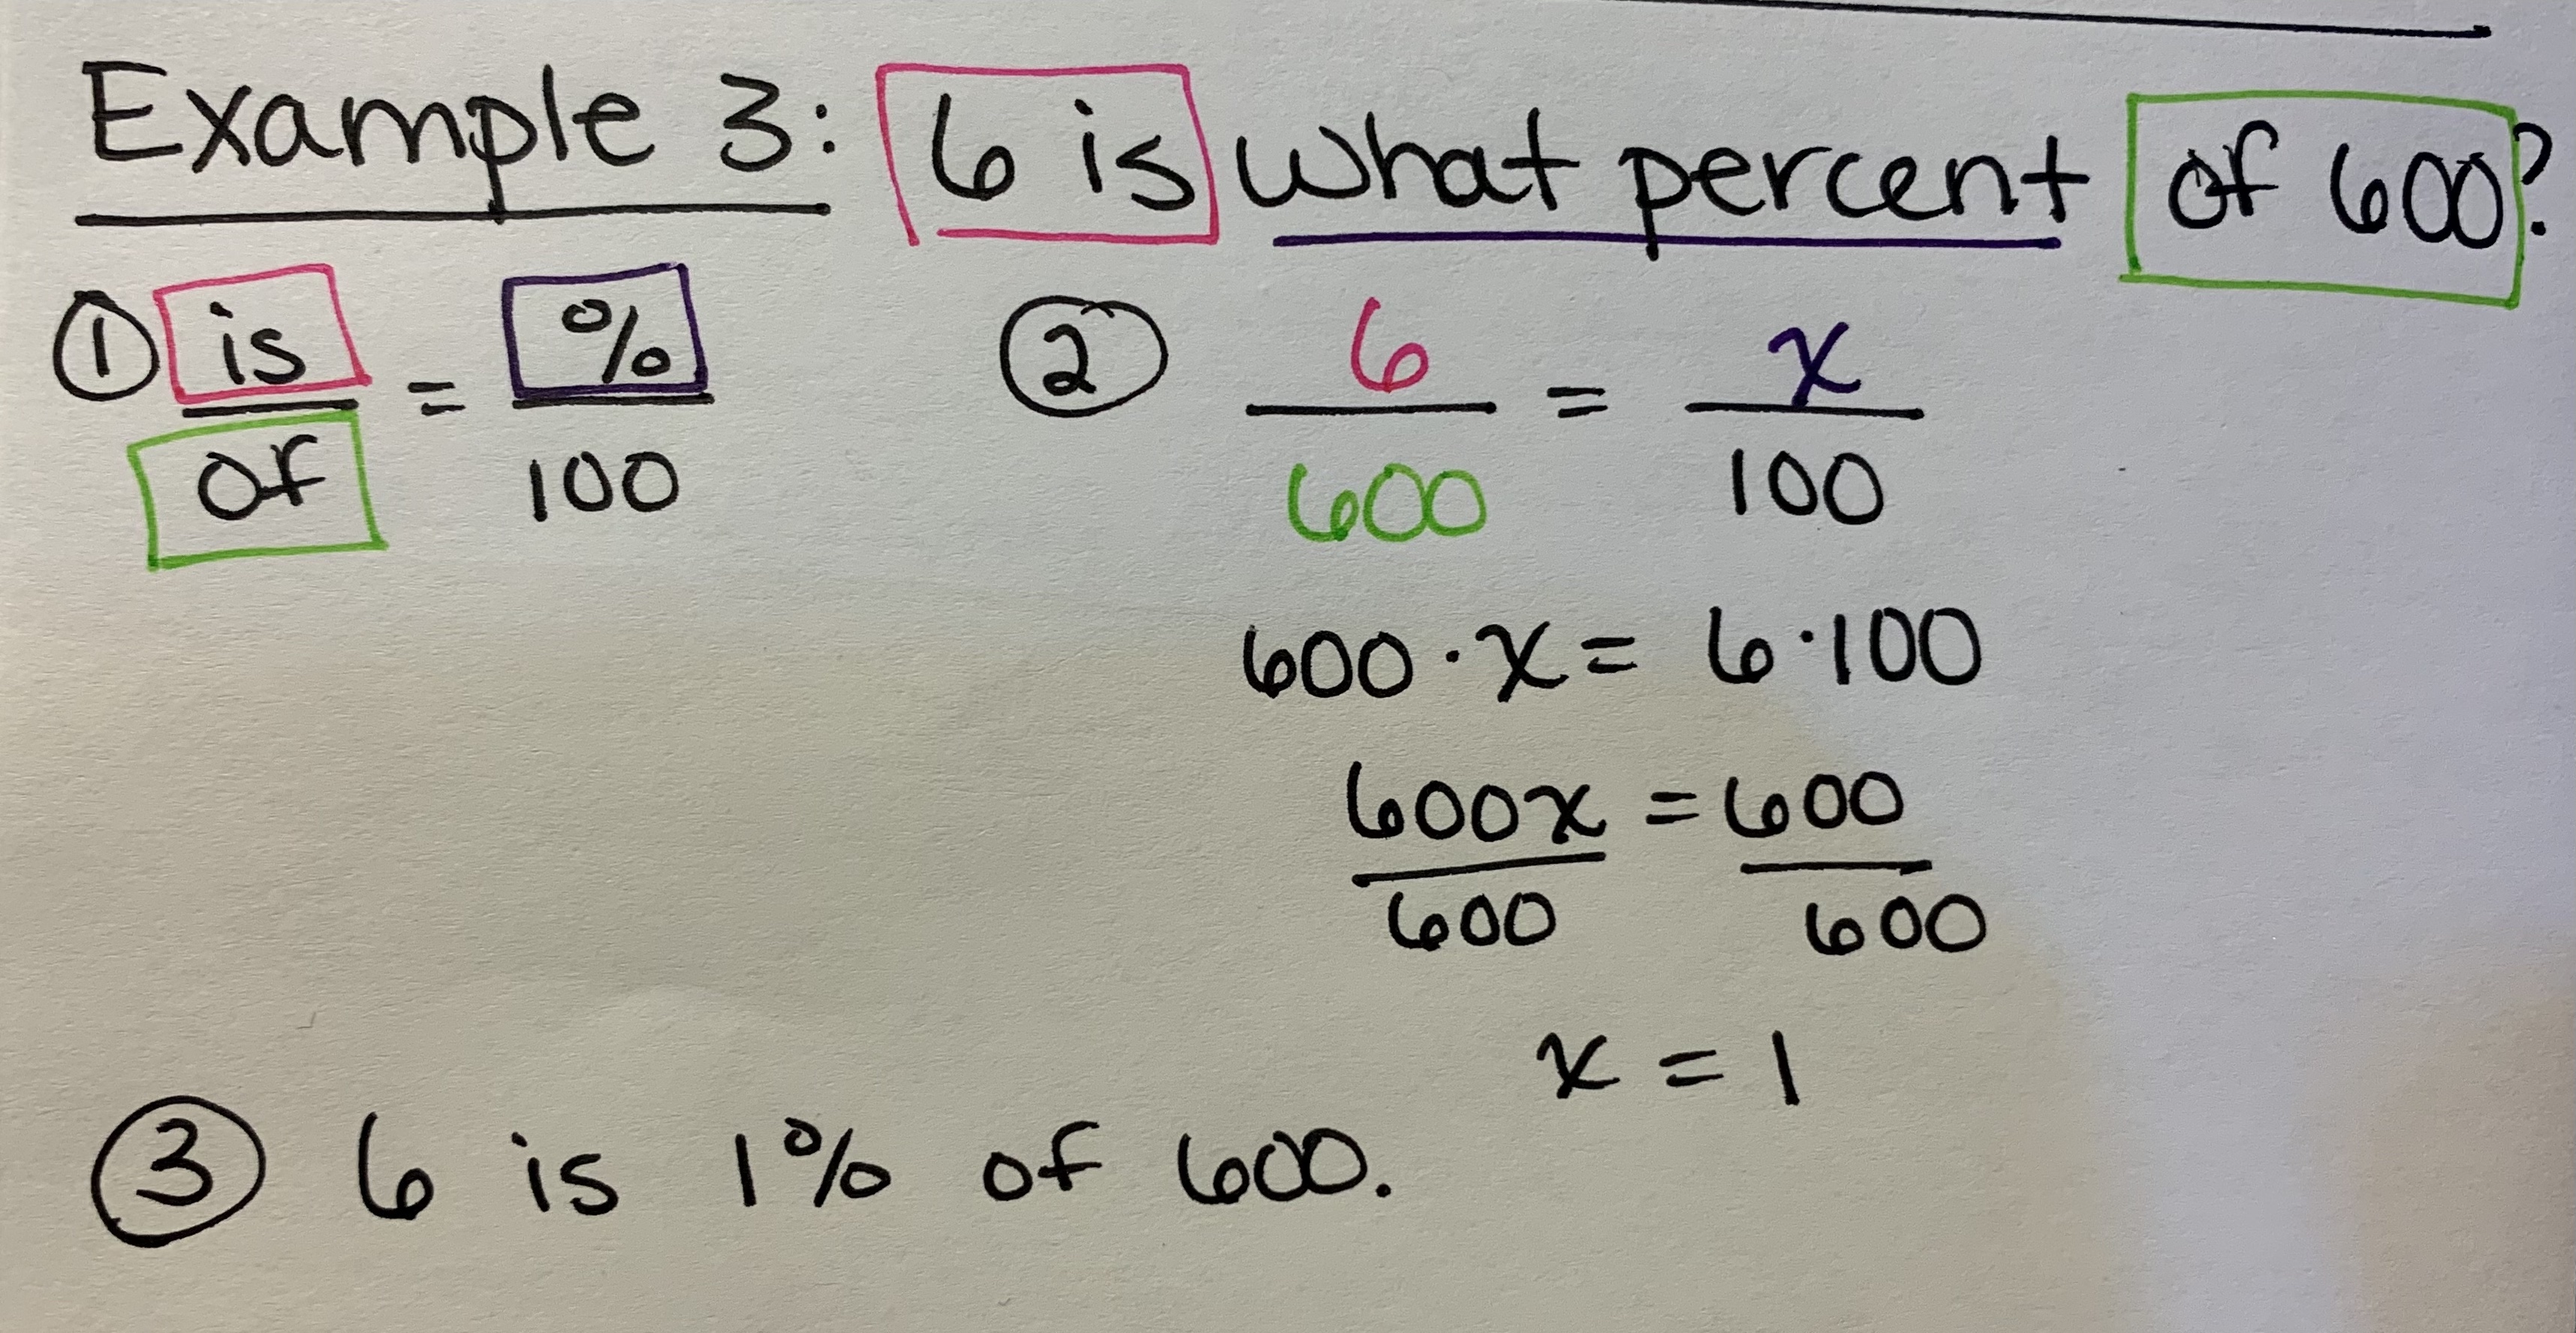 Example 3: 6 is what percent of 600?
① is/of = %/100
② 6/600 = x/100
600 · x = 6 · 100
600x/600 = 600/600
x = 1
③ 6 is 1% of 600.